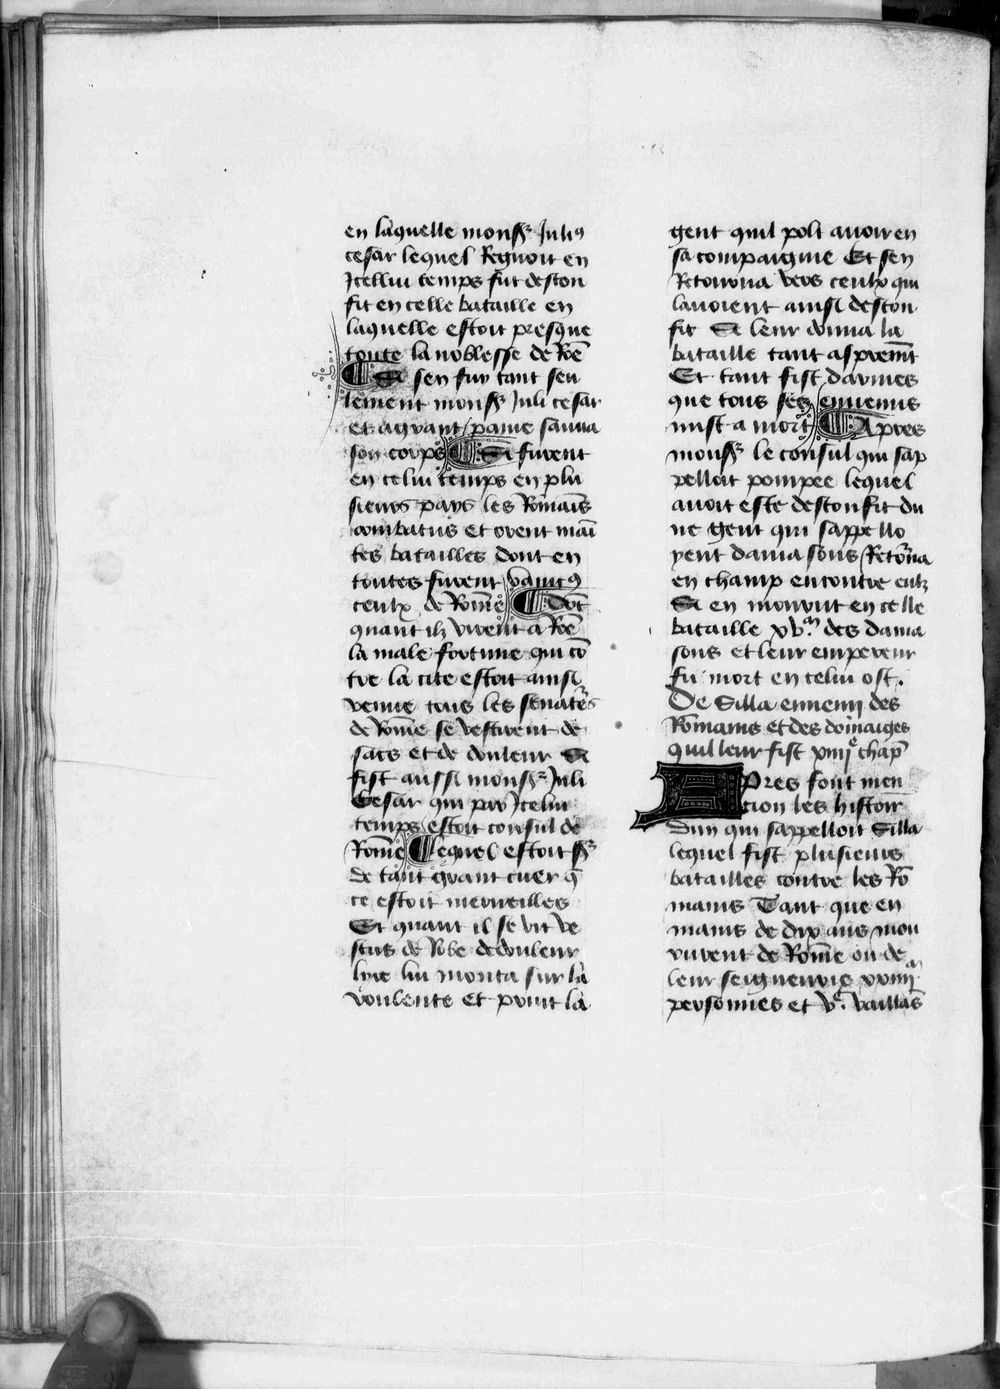 en laquelle monsr Juliꝰ
cesar lequel Regnoit en
Jcellui temps fut descon
fit en celle bataille en
laquelle estoit presque
toute la noblesse de Rōe
¶ Si sen fuy tant seu
lement monsr Juli cesar
et a grant paine sauua
son corps ¶ Si furent
en celui temps en plu
sieurs pays les Romaīs
combatus et orent maī
tes batailles dont en
toutes furent vaincꝰ
ceulx de Rom̄e ¶ Dōt
quant ilz virent a Rōe
la male fortune qui cō
tre la cite estoit ainsi
venue tous les senatrs
de Rom̄e se vestirent de
sacs et de douleur Si
fist aussi monsr Juli
Cesar qui par Jcelui
temps estoit consul de
Rom̄e ¶ Lequel estoit sr
de tant grant cuer q̄
ce estoit merueilles
Et quant il se vit ve
stus de Robe de douleur
lyre lui monta sur la
voulente et print la
gent quil polt auoir en
sa compaignie Et sen
Retourna vers ceulx qui
lauoient ainsi descon
fit Si leur donna la
bataille tant asprem̄t
Et tant fist darmes
que tous ses ennemis
mist a mort ¶ Apres
monsr le consul qui sap
pelloit pompee lequel
auoit este desconfit du
ne gent qui sappello
yent damasons Retorna
en champ encontre eulz
Si en mourut en celle
bataille xv.m des dama
sons et leur empereur
fu mort en celui ost.
De Silla ennemy des
Rommains et des domaiges
quil leur fist xiiije chapr
APres font men
cion les histoir
dun qui sappelloit Silla
lequel fist plusieurs
batailles contre les Rō
mains Tant que en
mains de dix ans mou
rurent de Rom̄e ou de
leur seigneurie xxiiij.m
personnes et v.c vaillās